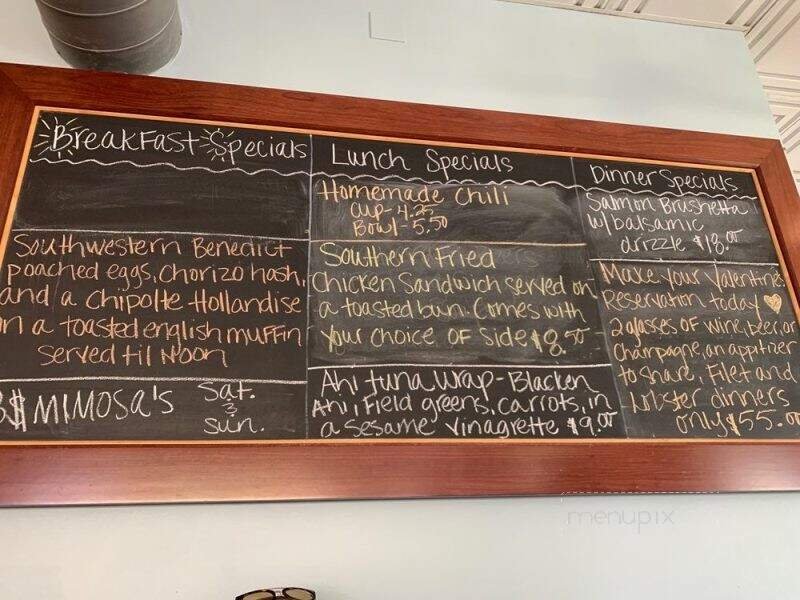 BreakFast Specials
Southwestern Benedict
poached eggs, Chorizo hash,
and a chipolte Hollandise
on a toasted english muffin
served til Noon
3$ MIMOSA's Sat. & Sun.
Lunch Specials
Homemade Chili
Cup - 4.25
Bowl - 5.50
Southern Fried
Chicken Sandwich served on
a toasted bun. Comes with
your choice of side $8.50
Ahi tuna Wrap - Blacken
Ahi, Field greens, Carrots, in
a sesame vinagrette $9.00
Dinner Specials
Salmon Brushetta
w/ balsamic
drizzle $13.00
Make your Valentines
Reservation today
2 glasses of wine, beer, or
Champagne, an appitizer
to share, Filet and
Lobster dinners
only $55.00
menupix